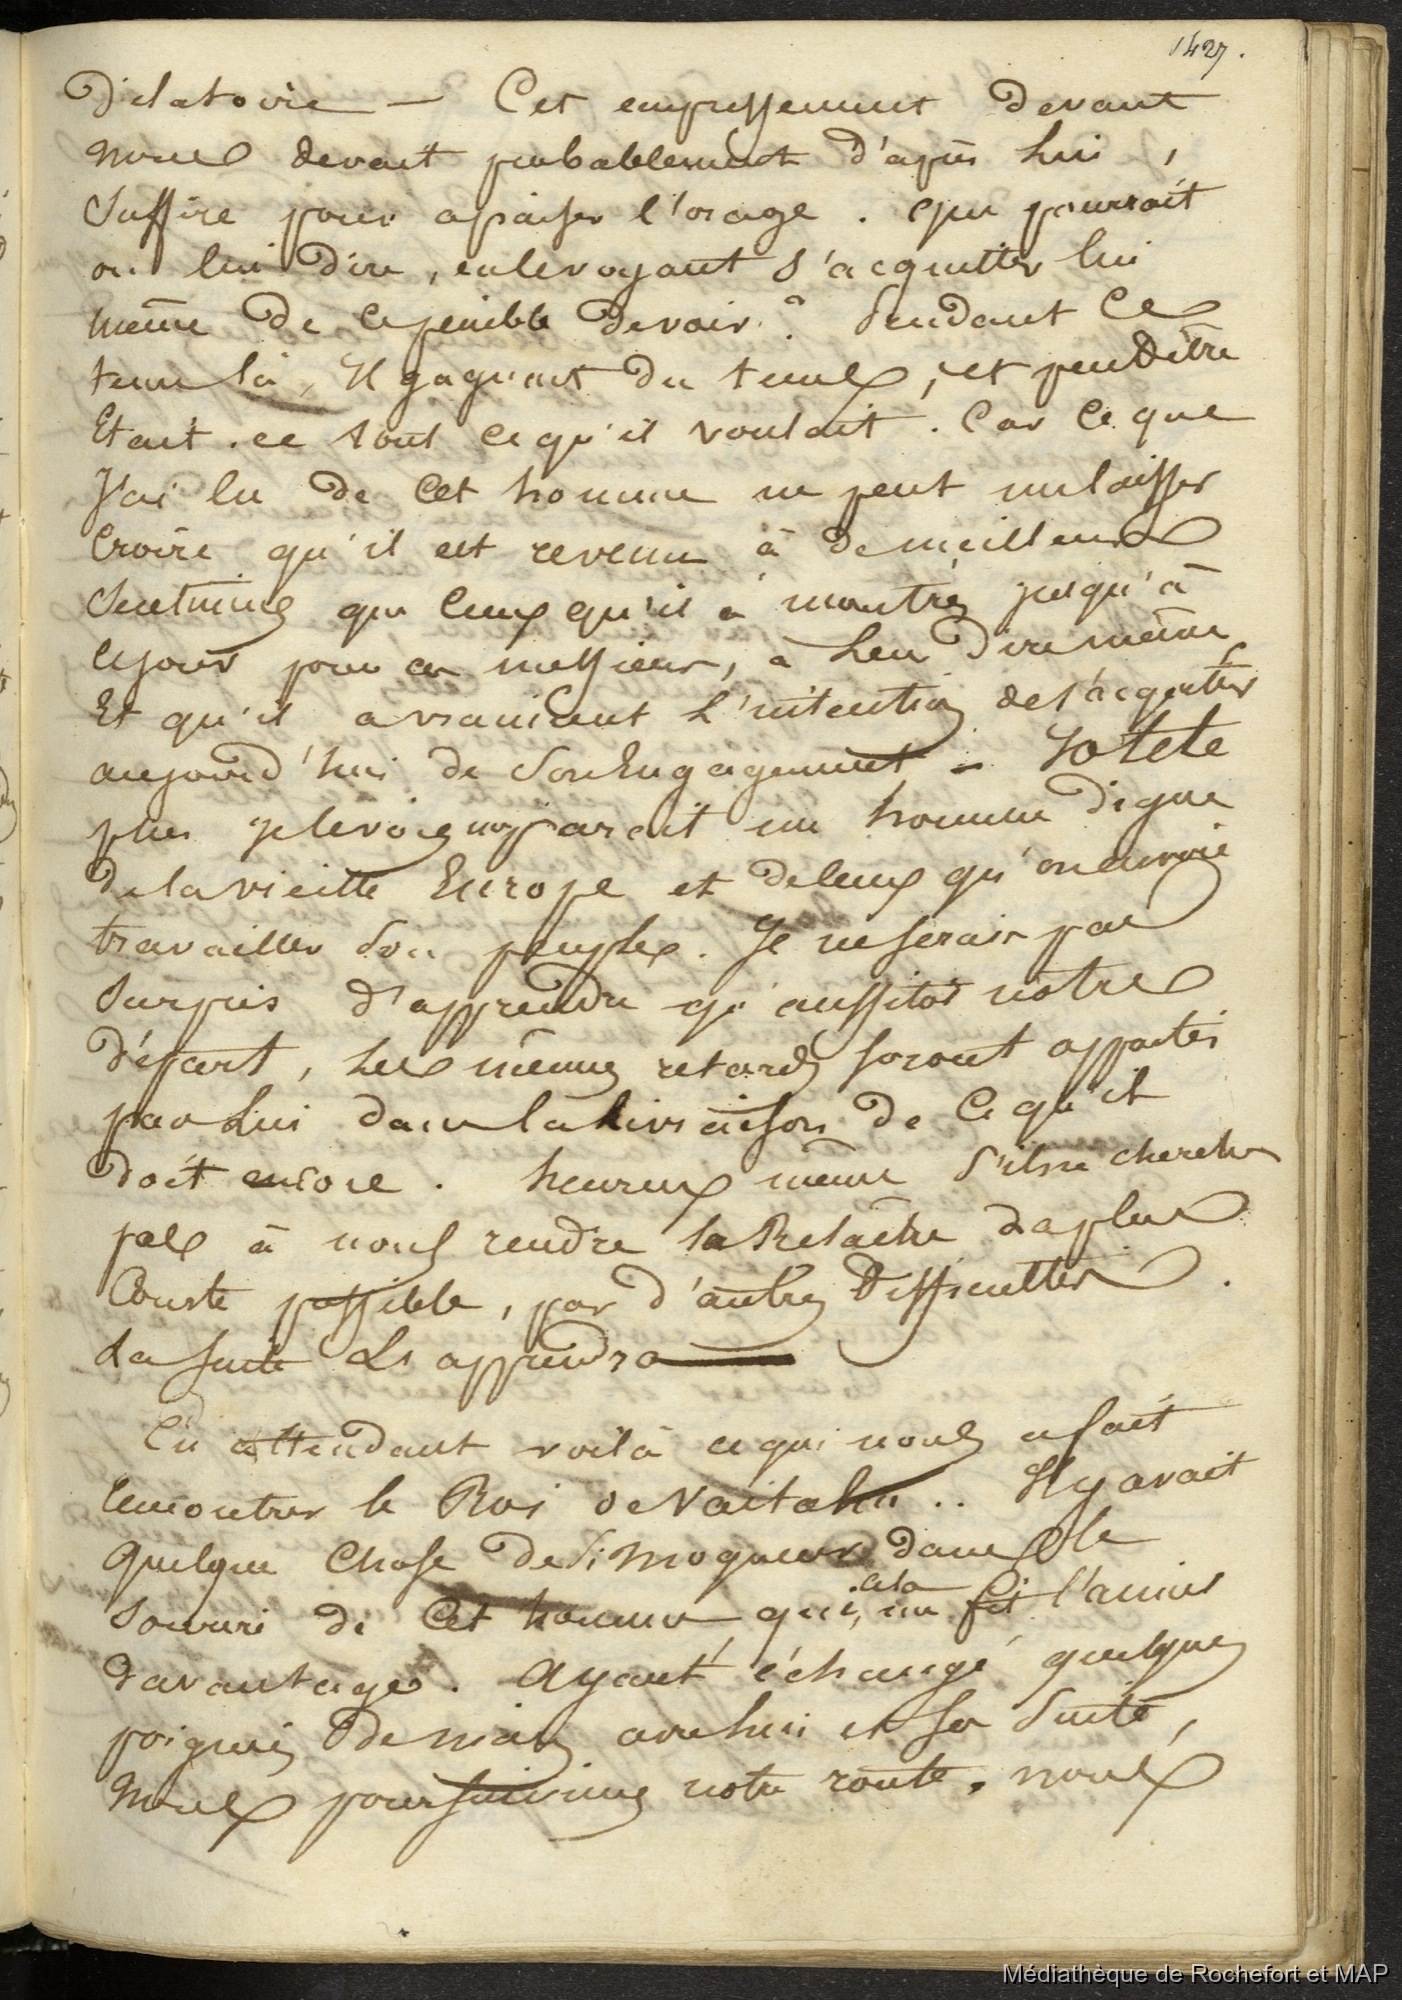 1427.
dilatoire — Cet empressement devant
nous devait probablement d'après lui,
suffire pour apaiser l'orage. Que pourrait
on lui dire, en le voyant s'acquitter lui
même de ce penible devoir? Pendant ce
tems là, Il gagnait du tems, et peut être
Etait.ce tout ce qu'il voulait. Car ce que
J'ai lu de cet homme ne peut me laisser
Croire qu'il est revenu à de meilleurs
sentimens que ceux qu'il a montrés jusqu'à
ce jour pour ces messieurs, à leur dire même
Et qu'il a vraiment l'intention de s'acquitter
aujourd'hui de son Engagement — Iotété
plus je le vois me parait un homme digne
de la vieille Europe et de ceux qu'on envoie
travailler son peuple. Je ne serais pas
surpris d'apprendre qu'aussitot nôtre
départ, les mêmes retards seront apportés
par Lui dans la Livraison de ce qu'il
doit encore. heureux même s'il ne cherche
pas à nous rendre la Relâche la plus
Courte possible, par d'autres difficultés.
La suite Ls apprendra —
En attendant voilà ce qui nous a fait
rencontrer le Roi de Vaitahu.. Il y avait
quelque Chose de si moqueur dans le
souris de cet homme que, cela me fit l'aimer
davantage. Ayant échangé quelques
poignées de mains avec lui et sa suite,
nous poursuivimes notre route. nous
Médiathèque de Rochefort et MAP